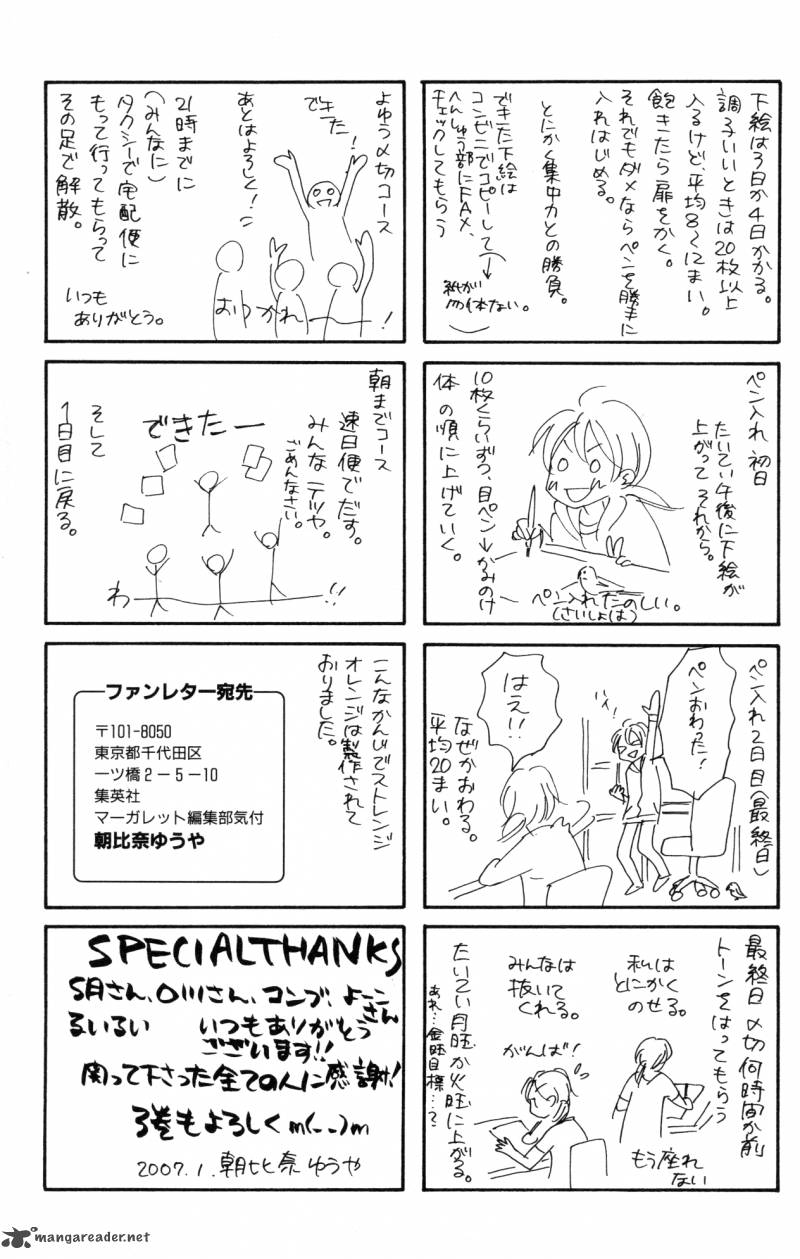 下絵は3日か4日かかる。
調子いいときは20枚以上
入るけど、平均8〜12まい。
飽きたら扉をかく。
それでもダメならペンを勝手に
入れはじめる。
とにかく集中力との勝負。
できた下絵は
コンビニでコピーして→
へんしゅう部にFAX、
チェックしてもらう
紙が
勿体ない。
ペン入れ 初日
たいてい午後に下絵が
上がって それから。
10枚くらいずつ、目ペン→かみのけ
体 の順に上げていく。
ペン入れたのしい。
(さいしょは)
ペン入れ2日目(最終日)
ペンおわった!
はえ!!
なぜかおわる。
平均20まい。
最終日 〆切何時間か前
トーンをはってもらう
私は
とにかく
のせる。
みんなは
抜いて
くれる。
がんば!
もう座れ
ない
たいてい月曜か火曜に上がる。
あれ…金曜目標…?
よゆう〆切コース
できた!
あとはよろしく!
21時までに
(みんなに)
タクシーで宅配便に
もって行ってもらって
その足で解散。
おつかれー!
いつも
ありがとう。
朝までコース
速日便でだす。
みんなテツヤ。
ごめんなさい。
できたー
わー!!
そして
1日目に戻る。
こんなかんじでストレンジ
オレンジは製作されて
おりました。
ファンレター宛先
〒101-8050
東京都千代田区
一ツ橋2-5-10
集英社
マーガレット編集部気付
朝比奈ゆうや
SPECIALTHANKS
S月さん、O川さん、コンブ、よこさん
るいるい いつもありがとう
ございます!!
関って下さった全ての人に感謝!
3巻もよろしくm(--)m
2007.1.朝比奈ゆうや
mangareader.net